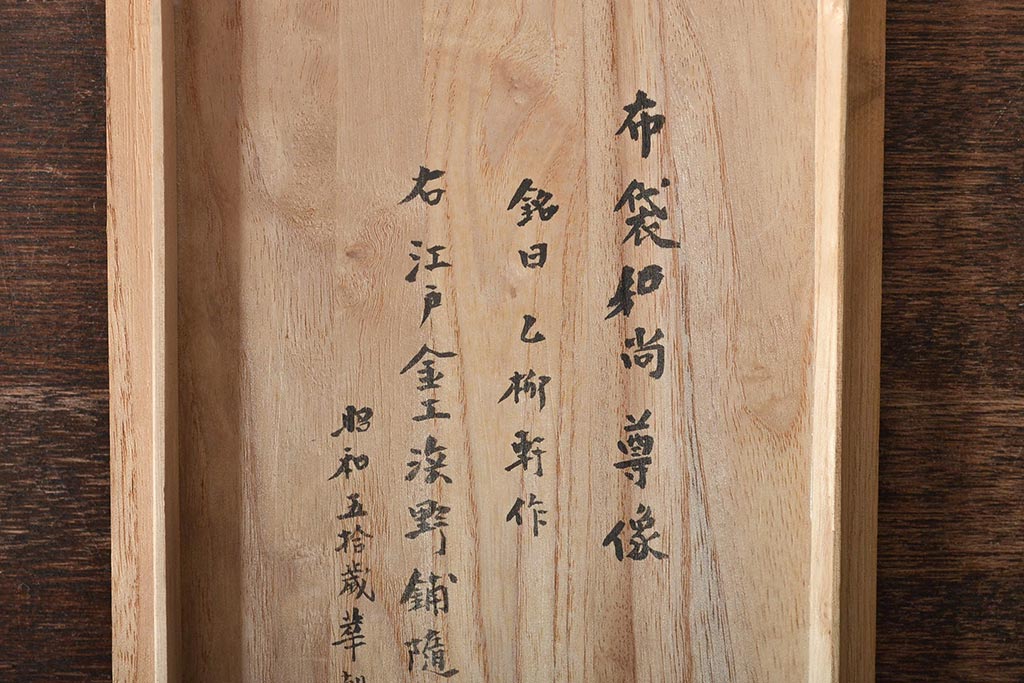 布袋和尚尊像
銘曰乙柳軒作
右江戸金工濱野鋪隨
昭和五拾歳華